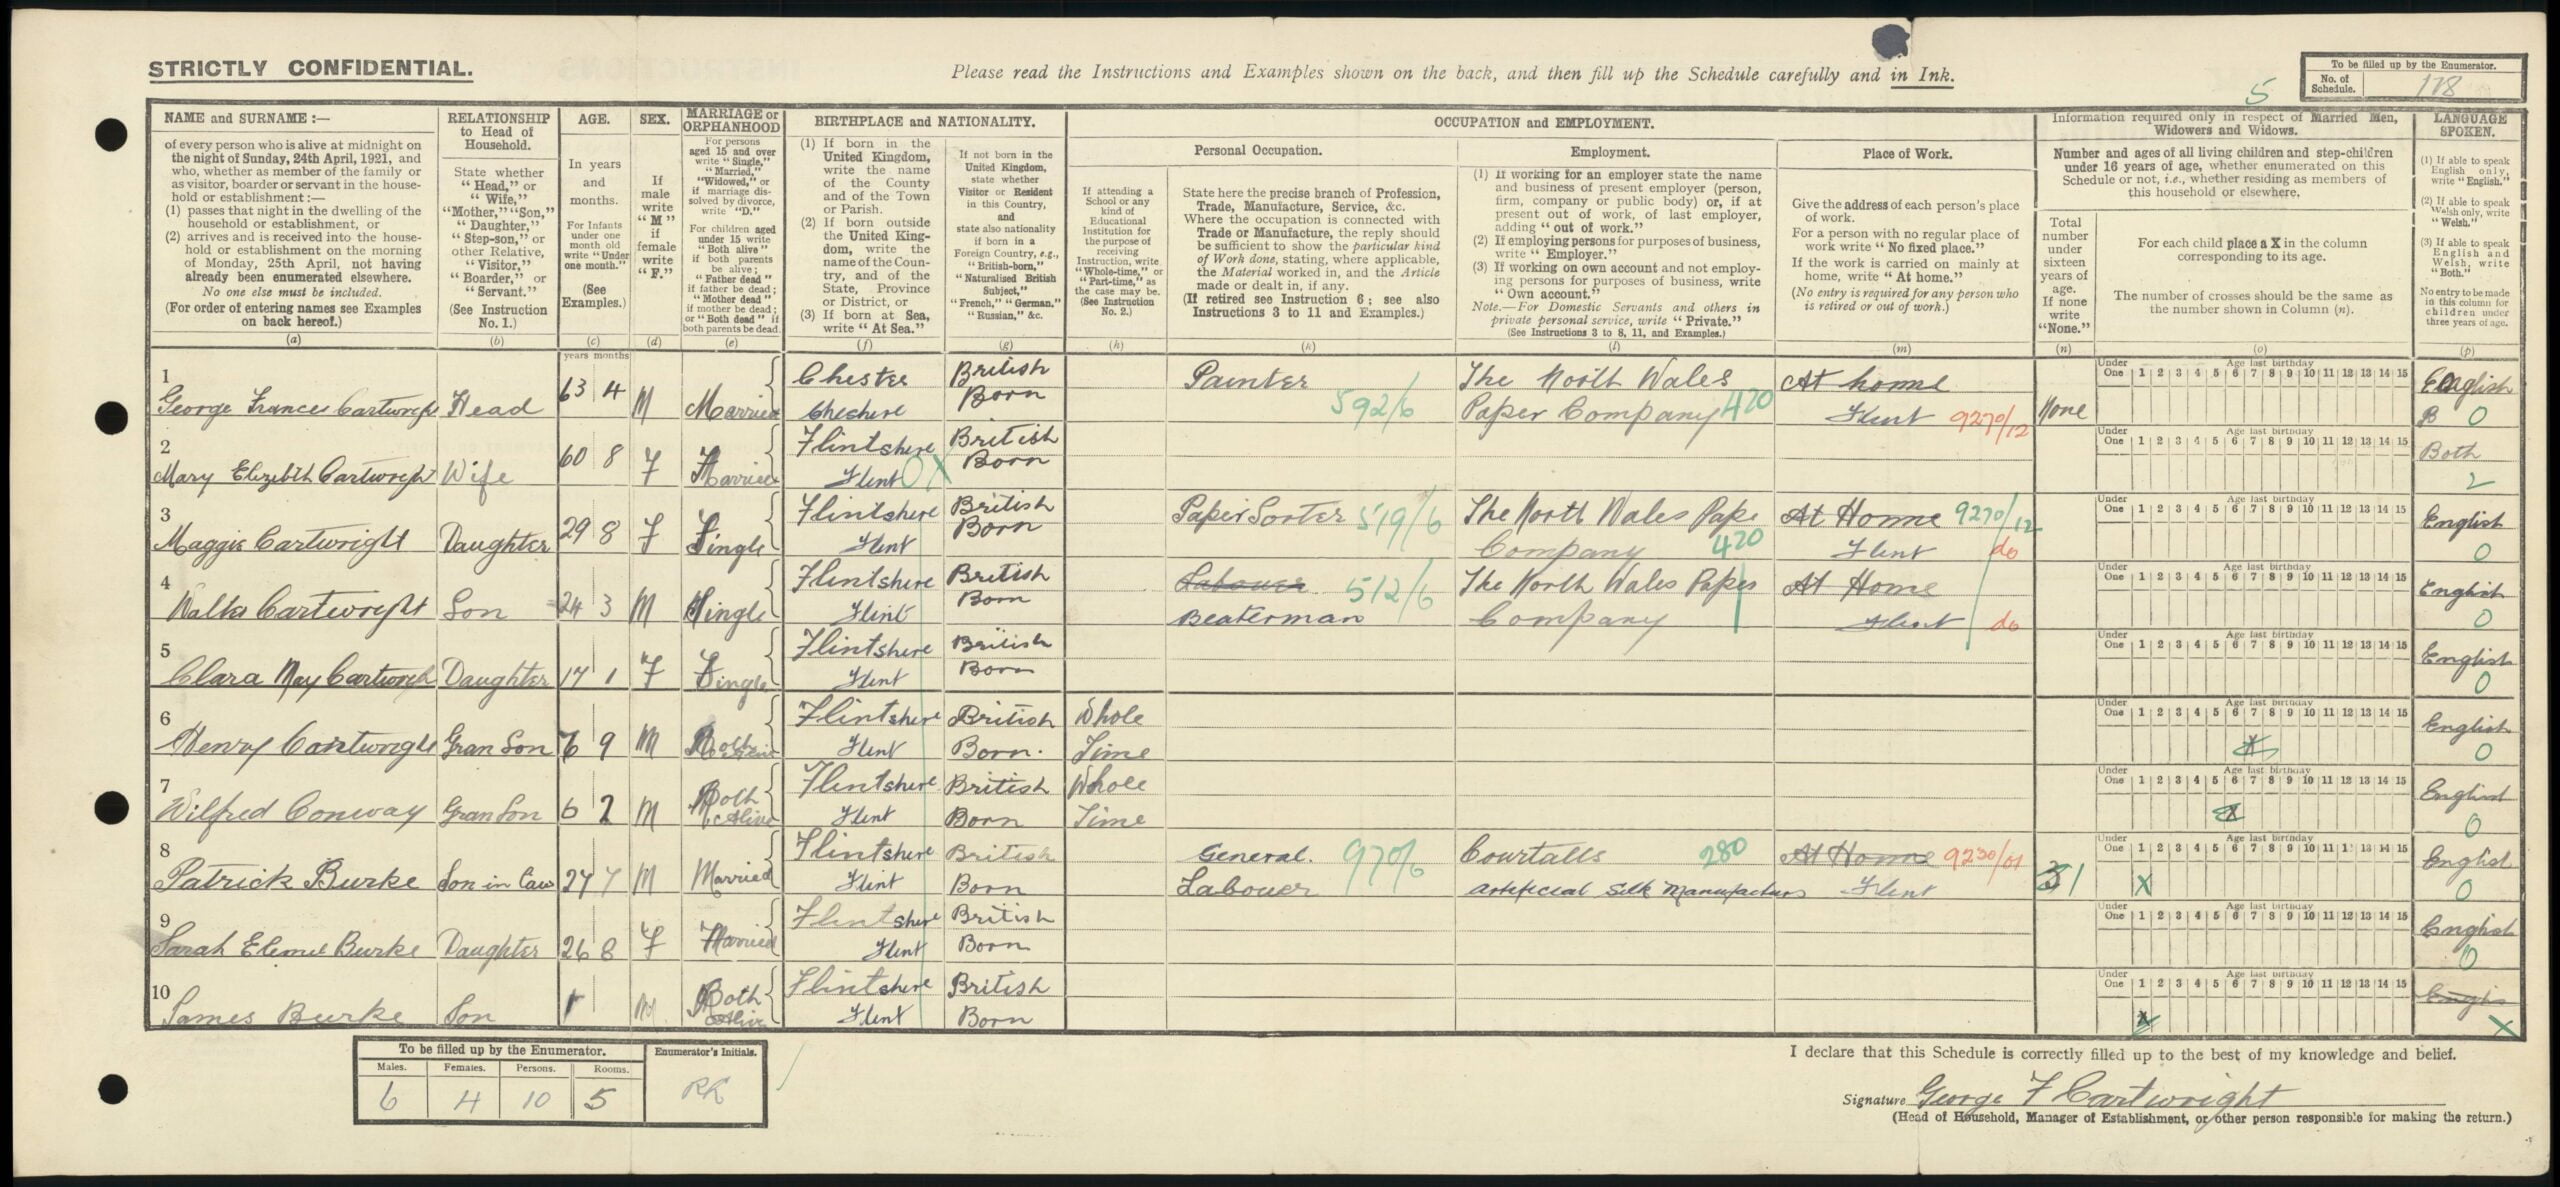 STRICTLY CONFIDENTIAL.
Please read the Instructions and Examples shown on the back, and then fill up the Schedule carefully and in Ink.
5
To be filled up by the Enumerator.
No. of Schedule. 178
NAME and SURNAME :—
of every person who is alive at midnight on
the night of Sunday, 24th April, 1921, and
who, whether as member of the family or
as visitor, boarder or servant in the house-
hold or establishment :—
(1) passes that night in the dwelling of the
household or establishment, or
(2) arrives and is received into the house-
hold or establishment on the morning
of Monday, 25th April, not having
already been enumerated elsewhere.
No one else must be included.
(For order of entering names see Examples
on back hereof.)
(a)
RELATIONSHIP
to Head of
Household.
State whether
"Head," or
"Wife,"
"Mother," "Son,"
"Daughter,"
"Step-son," or
other Relative,
"Visitor,"
"Boarder," or
"Servant."
(See Instruction
No. 1.)
(b)
AGE.
In years
and
months.
For Infants
under one
month old
write "Under
one month."
(See
Examples.)
(c)
SEX.
If
male
write
"M"
if
female
write
"F."
(d)
MARRIAGE or
ORPHANHOOD
For persons
aged 15 and over
write "Single,"
"Married,"
"Widowed," or
if marriage dis-
solved by divorce,
write "D."
For children aged
under 15 write
"Both alive"
if both parents
be alive;
"Father dead"
if father be dead;
"Mother dead"
if mother be dead;
or "Both dead" if
both parents be dead.
(e)
BIRTHPLACE and NATIONALITY.
(1) If born in the
United Kingdom,
write the name
of the County
and of the Town
or Parish.
(2) If born outside
the United King-
dom, write the
name of the Coun-
try, and of the
State, Province
or District, or
(3) If born at Sea,
write "At Sea."
(f)
If not born in the
United Kingdom,
state whether
Visitor or Resident
in this Country,
and
state also nationality
if born in a
Foreign Country, e.g.,
"British-born,"
"Naturalised British
Subject,"
"French," "German,"
"Russian," &c.
(g)
OCCUPATION and EMPLOYMENT.
If attending a
School or any
kind of
Educational
Institution for
the purpose of
receiving
Instruction, write
"Whole-time," or
"Part-time," as
the case may be.
(See Instruction
No. 2.)
(h)
Personal Occupation.
State here the precise branch of Profession,
Trade, Manufacture, Service, &c.
Where the occupation is connected with
Trade or Manufacture, the reply should
be sufficient to show the particular kind
of Work done, stating, where applicable,
the Material worked in, and the Article
made or dealt in, if any.
(If retired see Instruction 6; see also
Instructions 3 to 11 and Examples.)
(k)
Employment.
(1) If working for an employer state the name
and business of present employer (person,
firm, company or public body) or, if at
present out of work, of last employer,
adding "out of work."
(2) If employing persons for purposes of business,
write "Employer."
(3) If working on own account and not employ-
ing persons for purposes of business, write
"Own account."
Note.—For Domestic Servants and others in
private personal service, write "Private."
(See Instructions 3 to 8, 11, and Examples.)
(l)
Place of Work.
Give the address of each person's place
of work.
For a person with no regular place of
work write "No fixed place."
If the work is carried on mainly at
home, write "At home."
(No entry is required for any person who
is retired or out of work.)
(m)
Information required only in respect of Married Men,
Widowers and Widows.
Number and ages of all living children and step-children
under 16 years of age, whether enumerated on this
Schedule or not, i.e., whether residing as members of
this household or elsewhere.
Total
number
under
sixteen
years of
age.
If none
write
"None."
(n)
For each child place a X in the column
corresponding to its age.
The number of crosses should be the same as
the number shown in Column (n).
(o)
LANGUAGE
SPOKEN.
(1) If able to speak
English only,
write "English."
(2) If able to speak
Welsh only, write
"Welsh."
(3) If able to speak
English and
Welsh, write
"Both."
No entry to be made
in this column for
children under
three years of age.
(p)
years months
Under One Age last birthday 1 2 3 4 5 6 7 8 9 10 11 12 13 14 15
1 George Frances Cartwright Head 63 4 M Married Chester Cheshire British Born Painter 592/6 The North Wales Paper Company 420 At home Flint 9270/12 None English B 0
Under One Age last birthday 1 2 3 4 5 6 7 8 9 10 11 12 13 14 15
2 Mary Elizibth Cartwright Wife 60 8 F Married Flintshire Flint OX British Born Both 2
Under One Age last birthday 1 2 3 4 5 6 7 8 9 10 11 12 13 14 15
3 Maggie Cartwright Daughter 29 8 F Single Flintshire Flint British Born Paper Sorter 519/6 The North Wales Pape Company 420 At Home 9270/12 Flint do English 0
Under One Age last birthday 1 2 3 4 5 6 7 8 9 10 11 12 13 14 15
4 Cartwright Son 24 3 M Single Flintshire Flint British Born Labouer 512/6 Beaterman The North Wales Paper Company At Home Flint do English 0
Under One Age last birthday 1 2 3 4 5 6 7 8 9 10 11 12 13 14 15
5 Clara May Cartwright Daughter 17 1 F Single Flintshire Flint British Born English 0
Under One Age last birthday 1 2 3 4 5 6 7 8 9 10 11 12 13 14 15
6 Henry Cartwright Gran Son 6 9 M Both Alive Flintshire Flint British Born. Whole Time X English 0
Under One Age last birthday 1 2 3 4 5 6 7 8 9 10 11 12 13 14 15
7 Wilfred Conway Gran Son 6 2 M Both Alive Flintshire Flint British Born Whole Time X English 0
Under One Age last birthday 1 2 3 4 5 6 7 8 9 10 11 12 13 14 15
8 Patrick Burke Son in law 27 7 M Married Flintshire Flint British Born General. Labouer 970/6 Courtalls 280 Artificial Silk Manufacturs At Home 9230/01 Flint 1 X English 0
Under One Age last birthday 1 2 3 4 5 6 7 8 9 10 11 12 13 14 15
9 Sarah Burke Daughter 26 8 F Married Flintshire Flint British Born English 0
Under One Age last birthday 1 2 3 4 5 6 7 8 9 10 11 12 13 14 15
10 James Burke Son 1 M Both Alive Flintshire Flint British Born X X
To be filled up by the Enumerator.
Males. Females. Persons. Rooms.
6 4 10 5
Enumerator's Initials.
RK
I declare that this Schedule is correctly filled up to the best of my knowledge and belief.
Signature George F Cartwright
(Head of Household, Manager of Establishment, or other person responsible for making the return.)